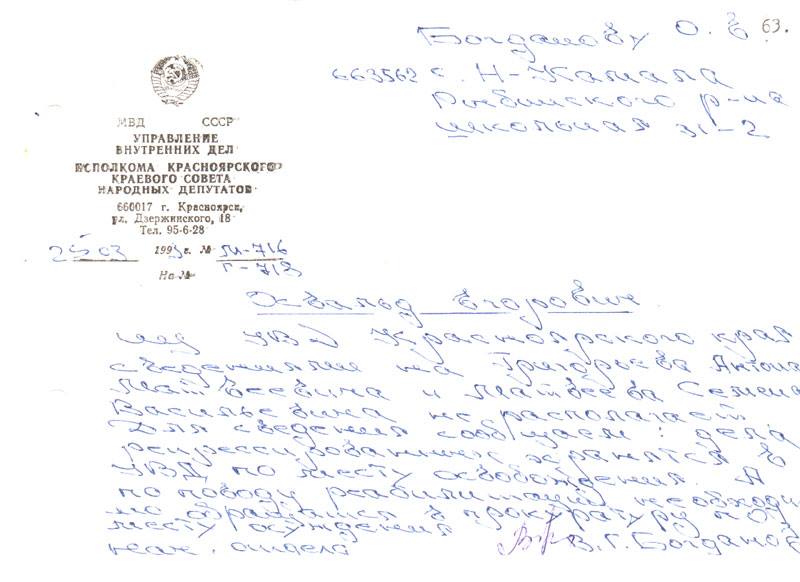 63.
Богданову О. Е.
663562 с. Н-Камала
Рыбинского р-на
школьная 31-2
МВД СССР
УПРАВЛЕНИЕ
ВНУТРЕННИХ ДЕЛ
ИСПОЛКОМА КРАСНОЯРСКОГО
КРАЕВОГО СОВЕТА
НАРОДНЫХ ДЕПУТАТОВ
660017 г. Красноярск,
ул. Дзержинского, 18
Тел. 95-6-28
25 03 1993 г. № М-716
На № Г-713
Освальд Егорович
ИЦ УВД Красноярского края
сведениями на Григорьева Антона
Матвеевича и Матвеева Семена
Васильевича не располагает
Для сведения сообщаем: дела
репрессированных хранятся в
УВД по месту освобождения. А
по поводу реабилитации необходи
мо обращаться в прокуратуру по
месту осуждения
нач. отдела В.Г. Богданов